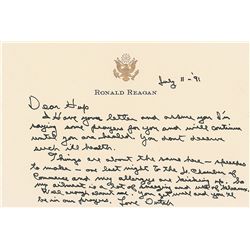 RONALD REAGAN
July 11 - '91
Dear Hup
I have your letter and assure you I'm
saying some prayers for you and will continue
until you are healed. You don't deserve
such ill health.
Things are about the same here - speeches
to make - one last night to the Jr. Chamber of
Commerce and my allergies are kicking up. So
my ailment is a lot of sneezing and
Well enough about me. You get well and you'll
be in our prayers. Love Dutch